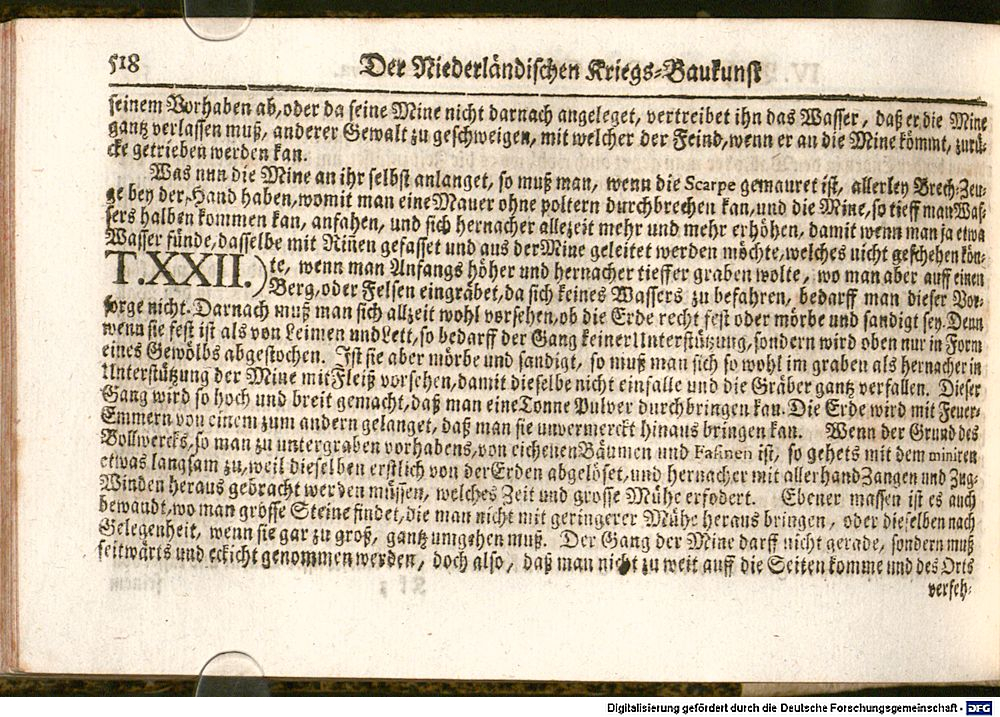 518 Der Niederländischen Kriegs-Baukunst
seinem Vorhaben ab, oder da seine Mine nicht darnach angeleget, vertreibet ihn das Wasser, daß er die Mine
gantz verlassen muß, anderer Gewalt zu geschweigen, mit welcher der Feind, wenn er an die Mine kömmt, zurü-
cke getrieben werden kan.
Was nun die Mine an ihr selbst anlanget, so muß man, wenn die Scarpe gemauret ist, allerley Brech-Zeu-
ge bey der Hand haben, womit man eine Mauer ohne poltern durchbrechen kan, und die Mine, so tieff man Was-
sers halben kommen kan, anfahen, und sich hernacher allezeit mehr und mehr erhöhen, damit wenn man ja etwa
Wasser fünde, dasselbe mit Riñen gefasset und aus der Mine geleitet werden möchte, welches nicht geschehen kön-
T.XXII.) te, wenn man Anfangs höher und hernacher tieffer graben wolte, wo man aber auff einen
Berg, oder Felsen eingräbet, da sich keines Wassers zu befahren, bedarff man dieser Vor-
sorge nicht. Darnach muß man sich allzeit wohl vorsehen, ob die Erde recht fest oder mörbe und sandigt sey. Denn
wenn sie fest ist als von Leimen und Lett, so bedarff der Gang keiner Unterstützung, sondern wird oben nur in Form
eines Gewölbs abgestochen. Ist sie aber mörbe und sandigt, so muß man sich so wohl im graben als hernacher in
Unterstützung der Mine mit Fleiß vorsehen, damit dieselbe nicht einfalle und die Gräber gantz verfallen. Dieser
Gang wird so hoch und breit gemacht, daß man eine Tonne Pulver durchbringen kan. Die Erde wird mit Feuer-
Emmern von einem zum andern gelanget, daß man sie unvermerckt hinaus bringen kan. Wenn der Grund des
Bollwercks, so man zu untergraben vorhabens, von eichenen Bäumen und Faßinen ist, so gehets mit dem miniren
etwas langsam zu, weil dieselben erstlich von der Erden abgelöset, und hernacher mit allerhand Zangen und Zug-
Winden heraus gebracht werden müssen, welches Zeit und grosse Mühe erfodert. Ebener massen ist es auch
bewandt, wo man grösse Steine findet, die man nicht mit geringerer Mühe heraus bringen, oder dieselben nach
Gelegenheit, wenn sie gar zu groß, gantz umgehen muß. Der Gang der Mine darff nicht gerade, sondern muß
seitwärts und eckicht genommen werden, doch also, daß man nicht zu weit auff die Seiten komme und des Orts
verfeh-
Digitalisierung gefördert durch die Deutsche Forschungsgemeinschaft - DFG